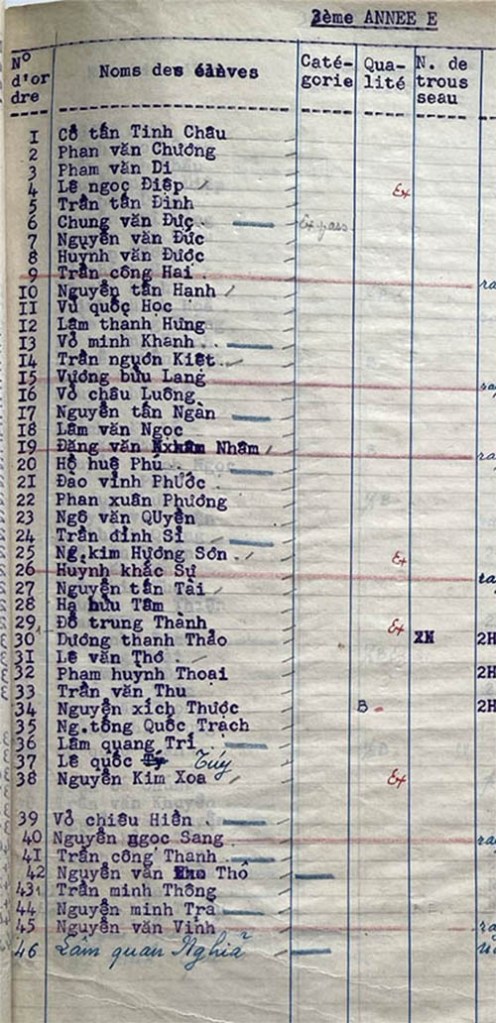 2ème ANNEE E
N° d'or dre Noms des élèves Caté- gorie Qua- lité N. de trous seau
I Cô tấn Tinh Châu
2 Phan văn Chưởng
3 Phạm văn Di
4 Lê ngọc Điệp Ex
5 Trần tấn Đình
6 Chung văn Đức
7 Nguyễn văn Đức
8 Huỳnh văn Được
9 Trần công Hai
IO Nguyễn tấn Hạnh
II Vũ quốc Học
I2 Lâm thanh Hưng
I3 Võ minh Khanh
I4 Trần nguơn Kiệt
I5 Vương bửu Lang
I6 Võ châu Luông
I7 Nguyễn tấn Ngàn
I8 Lâm văn Ngọc
I9 Đặng văn Nhâm
20 Hồ huệ Phú
2I Đào vinh Phước
22 Phan xuân Phương
23 Ngô văn QUyền
24 Trần đình Sĩ
25 Ng.kim Hương Sơn Ex
26 Huỳnh khắc Sự
27 Nguyễn tấn Tài
28 Hạ hữu Tâm
29 Đỗ trung Thành Ex
30 Dương thanh Thảo 2H
3I Lê văn Thơ
32 Phạm huỳnh Thoại 2H
33 Trần văn Thu
34 Nguyễn xích Thược B - 2H
35 Ng.tống Quốc Trạch
36 Lâm quang Tri
37 Lê quốc Túy
38 Nguyễn Kim Xoa Ex
39 Võ chiêu Hiền
40 Nguyễn ngọc Sang
4I Trần công Thanh
42 Nguyễn văn Thố
43 Trần minh Thông
44 Nguyễn minh Trà
45 Nguyễn văn Vinh
46 Lâm quan Nghĩa